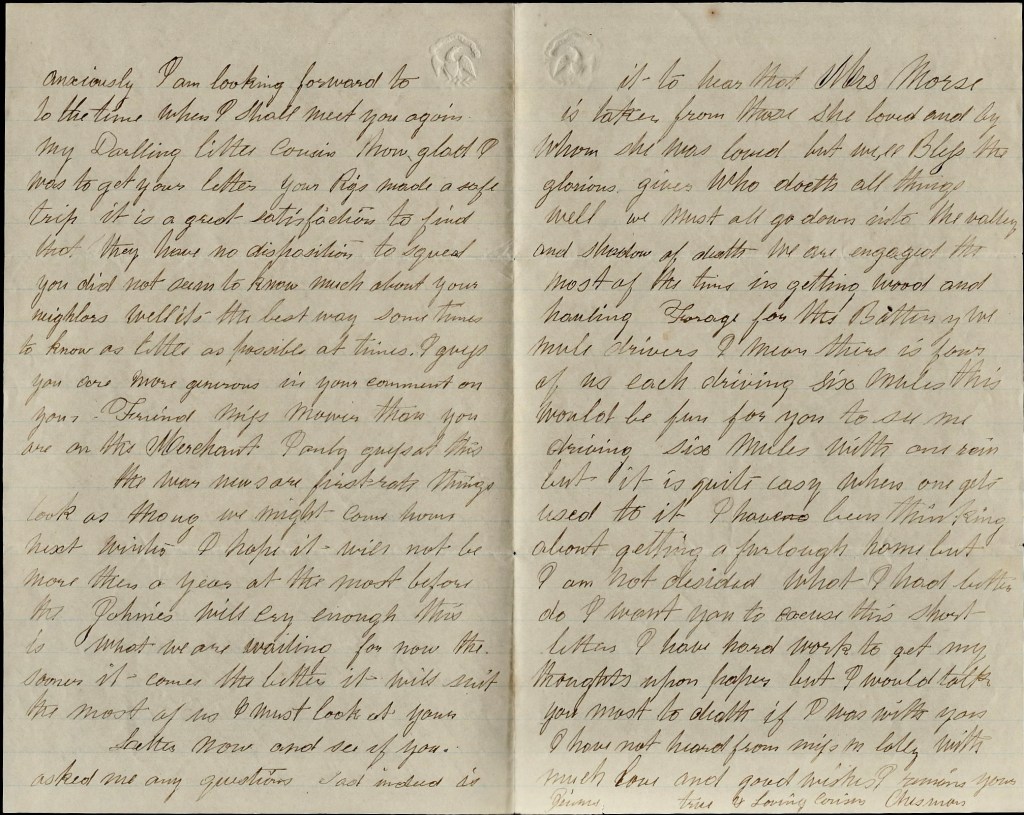 anxiously I am looking forward to
to the time when I shall meet you again
my Darlling little Cousin Thow glad I
was to get your letter your Pigs made a safe
trip it is a great satisfaction to find
that they have no disposition to squeal
you did not seem to know much about your
neighbors well its the best way some times
to know as little as possible at times. I guess
you are more generous in your comment on
your Friend Miss than you
are on the Merchant I only guess at this
the war news are first rate things
look as thoug we might come home
next winter I hope it will not be
more then a year at the most before
the Johnies will cry enough this
is what we are waiting for now the
sooner it comes the better it will suit
the most of us I must look at your
Letter now and see if you
asked me any questions Sad indeed is
it to hear that Mrs Morse
is taken from those she loved and by
whom she was loved but we,ll Bless the
glorious giver who doeth all things
well we must all go down into the valley
and shadow of death We are engaged the
most of the time in getting wood and
hauling Forage for the Battery We
mule drivers I mean thers is four
of us each driving six Mules this
would be fun for you to see me
driving six Mules with one rein
but it is quite easy when one gets
used to it I have been thinking
about getting a furlough home but
I am not desided what I had better
do I want you to excuse this short
letter I have hard work to get my
thoughts upon paper but I would talk
you most to death if I was with you
I have not heard from miss M lally with
much love and good wishes I remain your
true & Loving Cousin Chesman